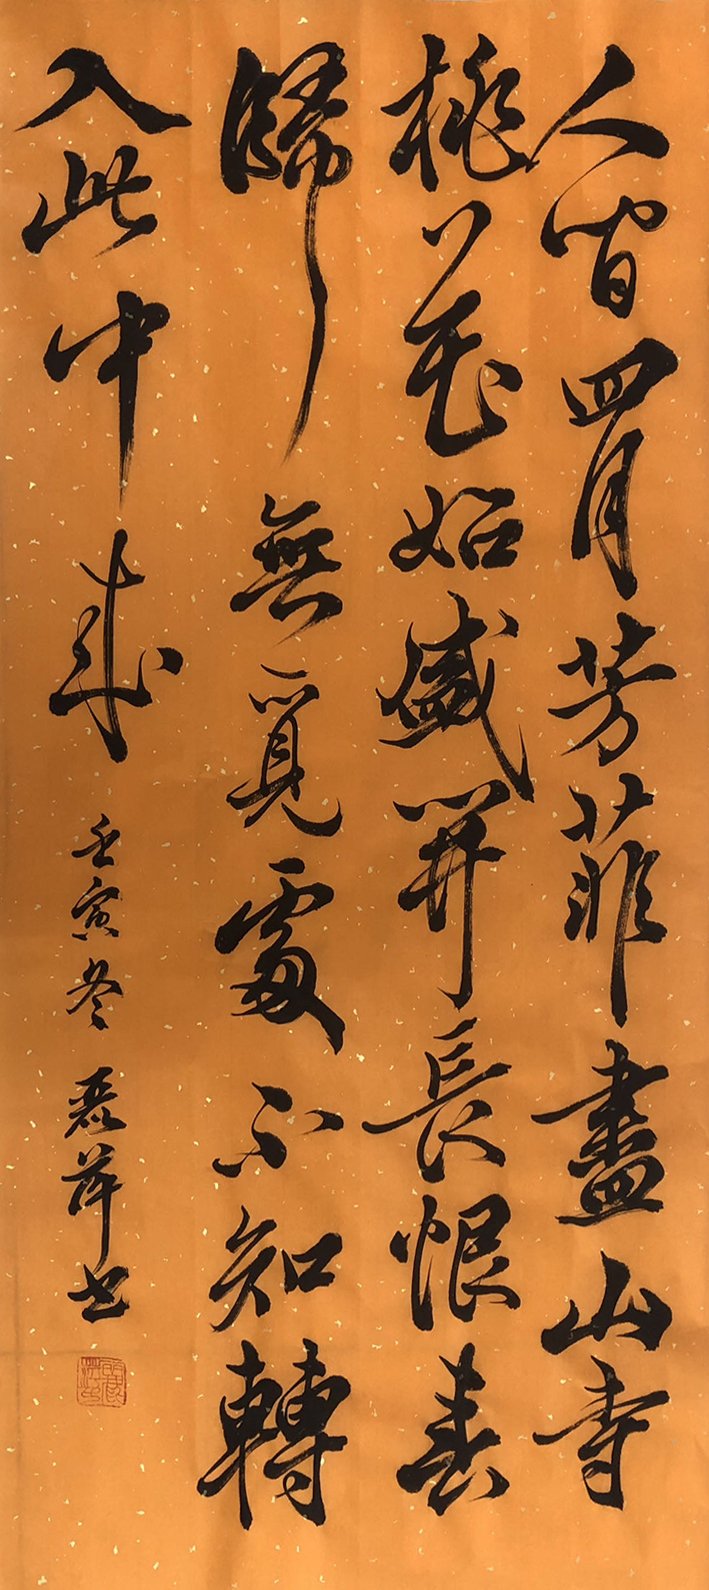 人間四月芳菲盡山寺
桃花始盛開長恨春
歸無覓處不知轉
入此中來
壬寅冬
書